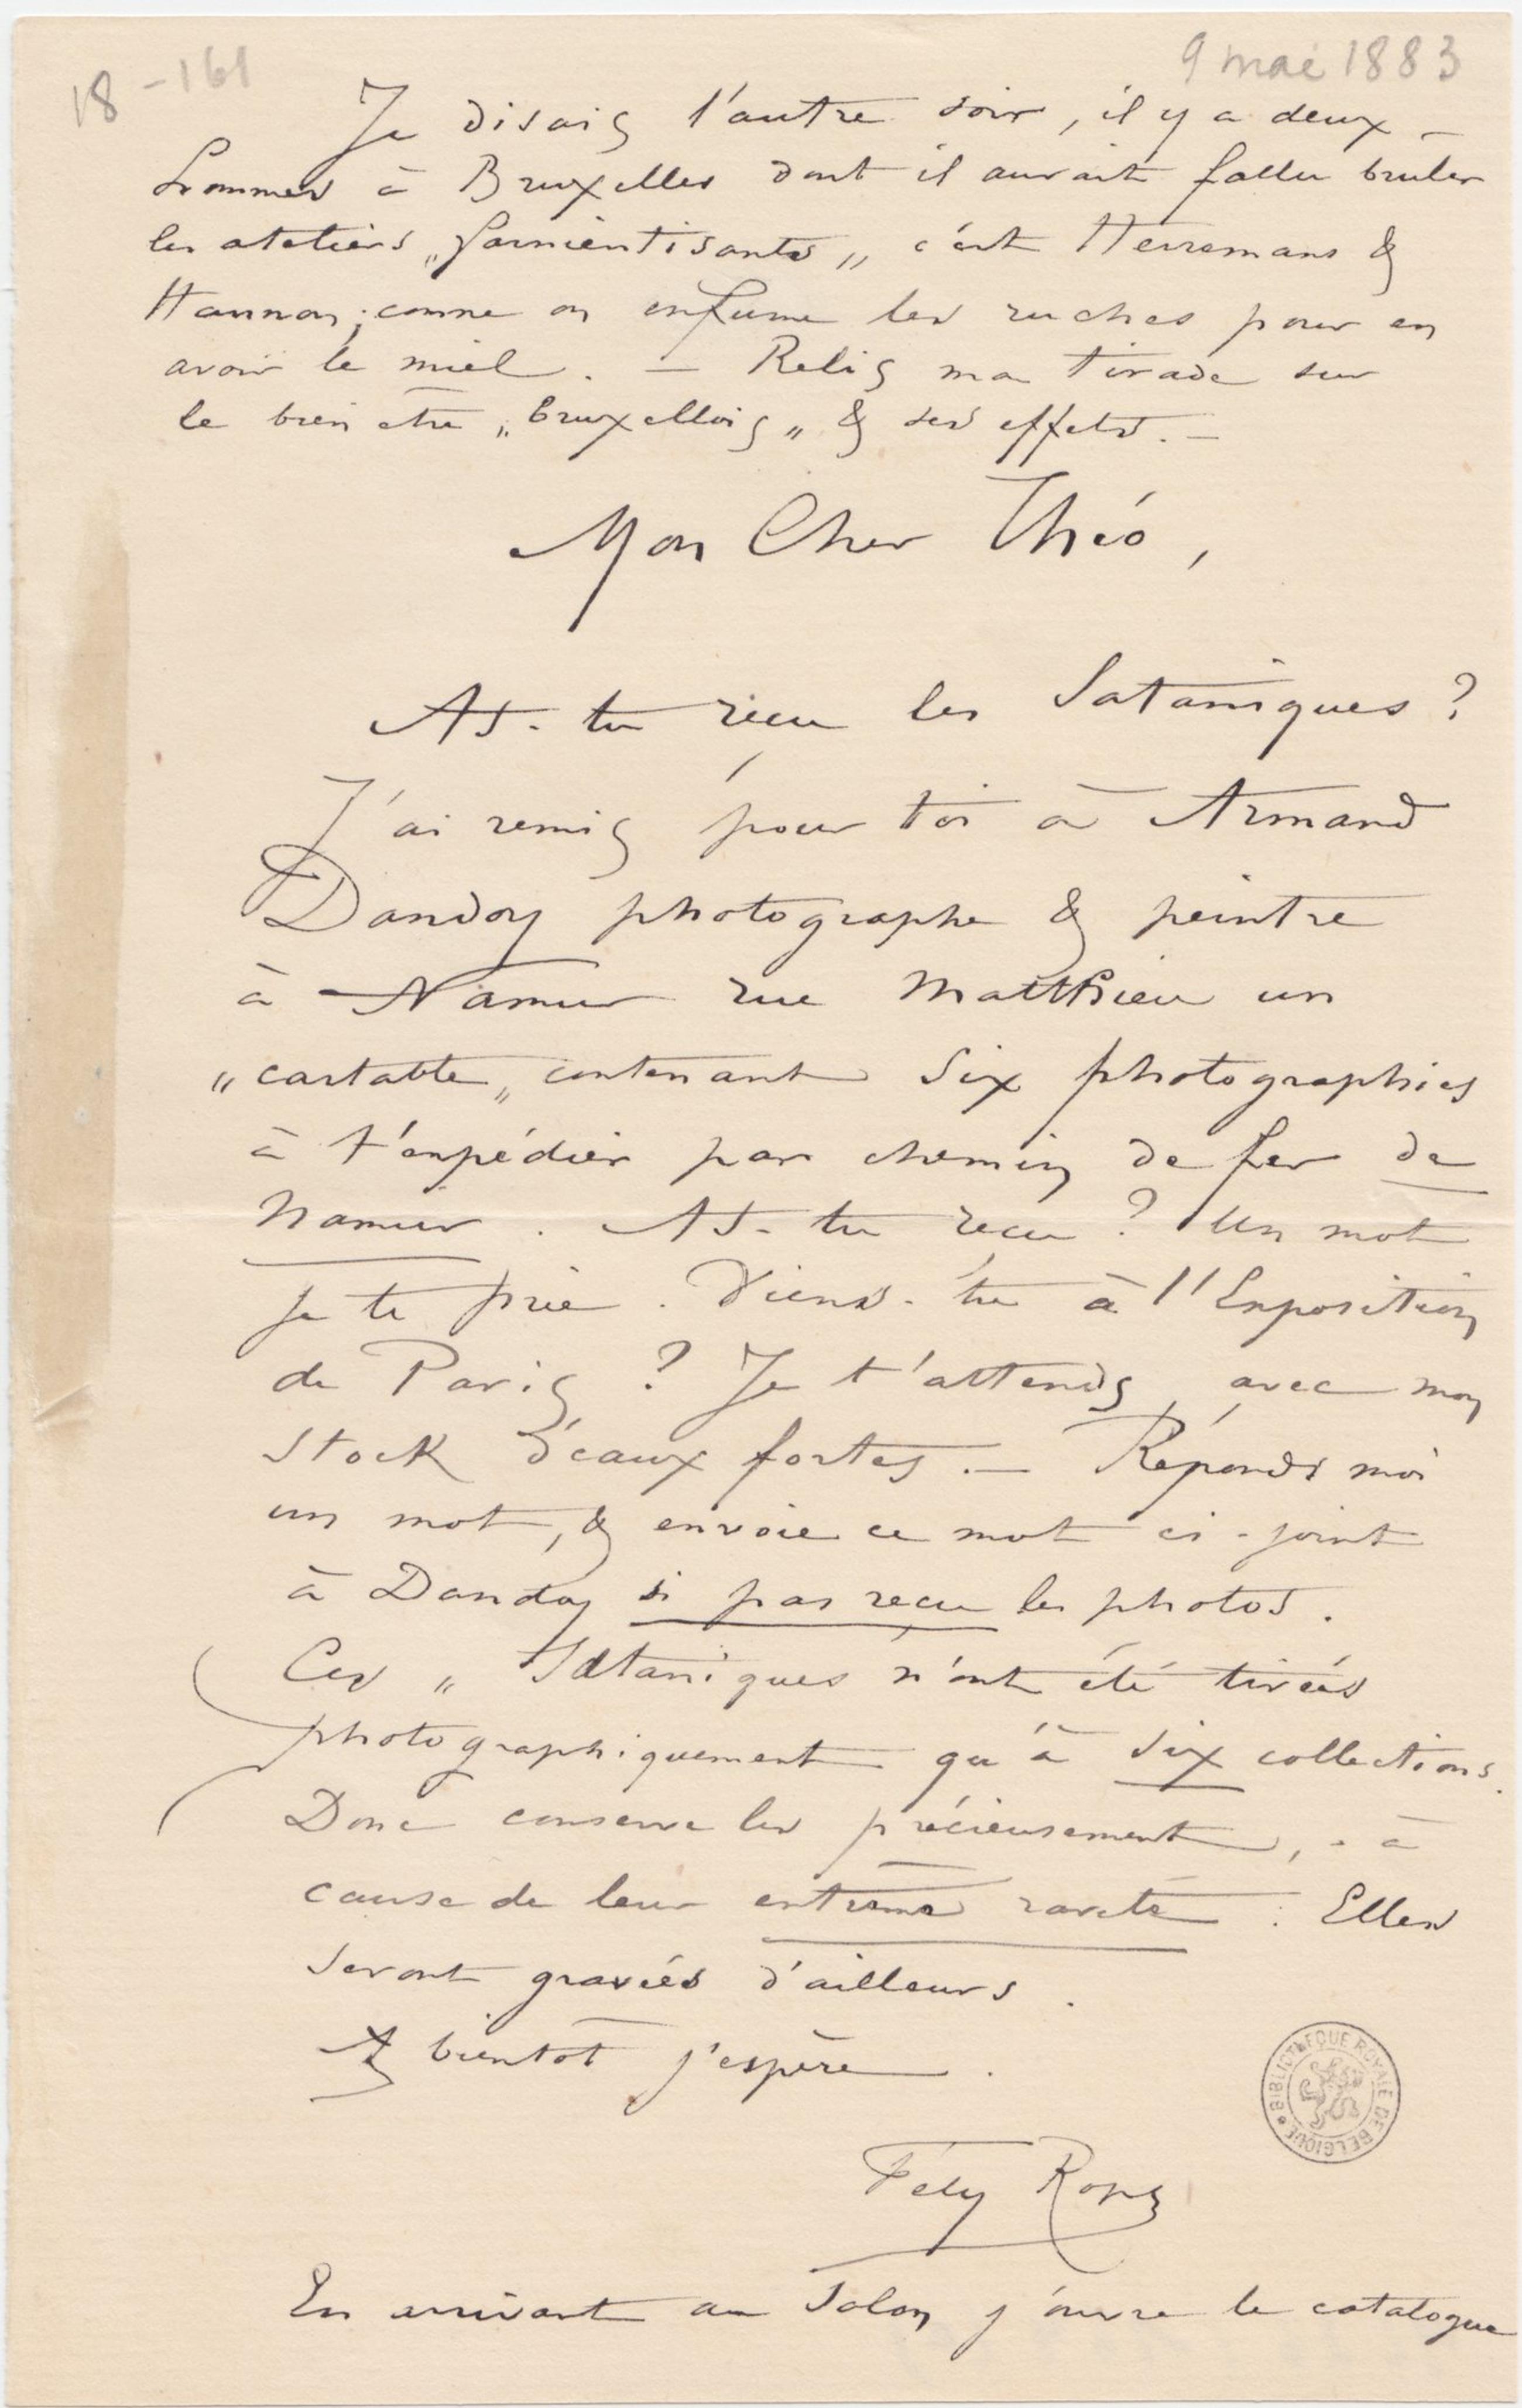 18 - 161
9 mai 1883
Je disais l'autre soir, il y a deux
hommes à Bruxelles dont il aurait fallu brûler
les ateliers „farnientisants„ c'est Herremans &
Hannon, comme on enfume les ruches pour en
avoir le miel. — Relis ma tirade sur
le bien être „bruxellois„ & ses effets. —
Mon Cher Théo,
As-tu reçu les Sataniques ?
J'ai remis pour toi à Armand
Dandoy photographe & peintre
à Namur rue Matthieu un
„cartable„ contenant six photographies
à t'expédier par chemin de fer de
Namur. As-tu reçu ? Un mot
je te prie. Viens-tu à l'Exposition
de Paris ? Je t'attends avec mon
stock d'eaux fortes. — Réponds moi
un mot, & envoie ce mot ci-joint
à Dandoy si pas reçu les photos.
Ces „ Sataniques n'ont été tirées
photographiquement qu'à six collections.
Donc conserve les précieusement, - à
cause de leur extrême rareté. Elles
seront gravées d'ailleurs.
A bientôt j'espère.
Fély Rops
BIBLIOTHÈQUE ROYALE DE BELGIQUE
En arrivant au Salon j'ouvre le catalogue